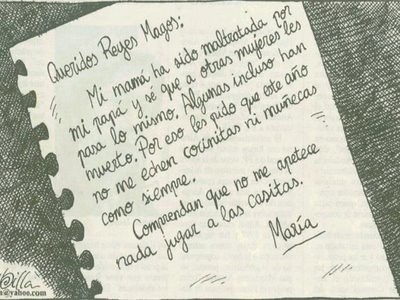 Queridos Reyes Magos:
Mi mamá ha sido maltratada por
mi papá y sé que a otras mujeres les
pasa lo mismo. Algunas incluso han
muerto. Por eso les pido que este año
no me echen cocinitas ni muñecas
como siempre.
Comprendan que no me apetece
nada jugar a las casitas.
María